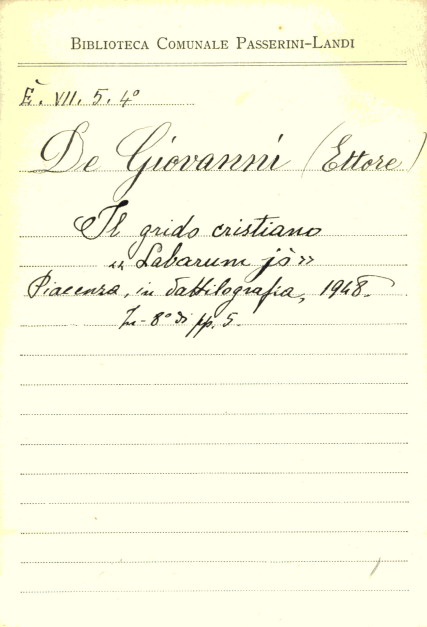 BIBLIOTECA COMUNALE PASSERINI-LANDI
È. VII. 5. 4º
De Giovanni (Ettore)
Il grido cristiano
"Labarum jò"
Piacenza, in dattilografia, 1948.
In-8º di pp. 5.